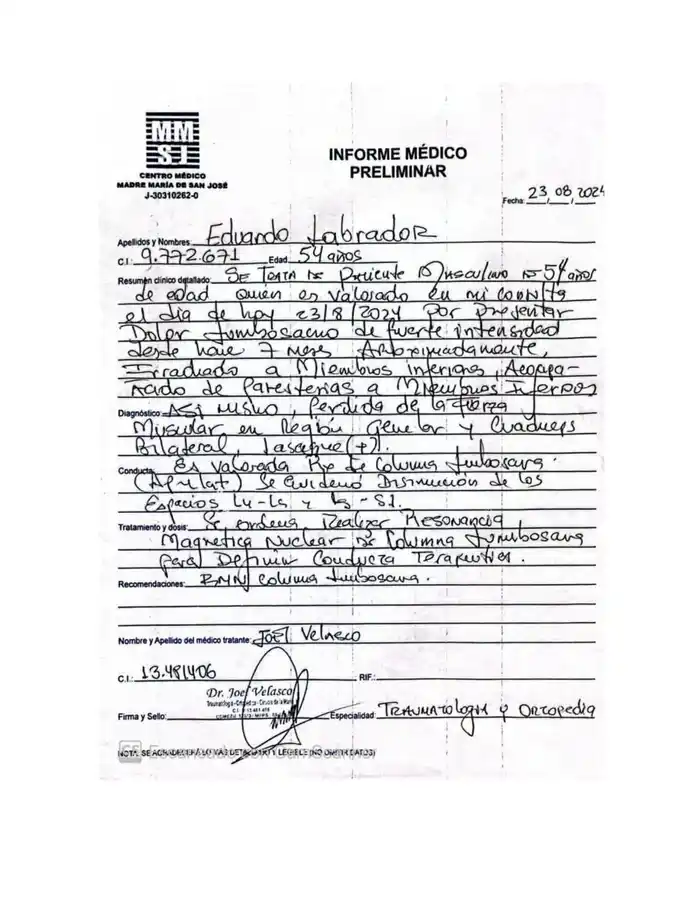 MM
SJ
CENTRO MÉDICO
MADRE MARÍA DE SAN JOSÉ
J-30310262-0
INFORME MÉDICO
PRELIMINAR
Fecha: 23 08 2024
Apellidos y Nombres: Eduardo Labrador
C.I.: 9.772.671 Edad 54 años
Resumen clínico detallado: Se Trata de Paciente Masculino de 54 años
de edad quien es valorado en mi consulta
el dia de hoy 23/8/2024 por presentar
Dolor Lumbosacro de fuerte intensidad
desde hace 7 meses Aproximadamente,
Irradiado a Miembros inferiores, Acompa-
ñado de Parestesias a Miembros Inferiores
Diagnóstico: Asi mismo, Perdida de la fuerza
Muscular en Región Gemelar y Cuadriceps
Bilateral, Lasegue (+).
Conducta: Es valorada Rx de Columna Lumbosacra.
(AP y Lat) Se Evidenció Disminución de los
Espacios L4-L5 y L5-S1.
Tratamiento y dosis: Se ordena Realizar Resonancia
Magnetica Nuclear de Columna Lumbosacra
para Definir Conducta Terapeutica.
Recomendaciones: RMN Columna Lumbosacra.
Nombre y Apellido del médico tratante: Joel Velasco
C.I.: 13.481406 RIF.:
Dr. Joel Velasco
Firma y Sello: Especialidad: Traumatologia y Ortopedia
NOTA: SE AGRADECE